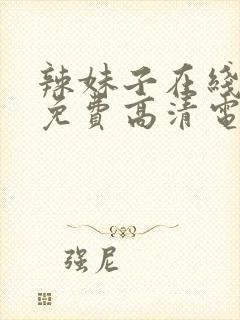 辣妹子在线
免費高清電
强尼